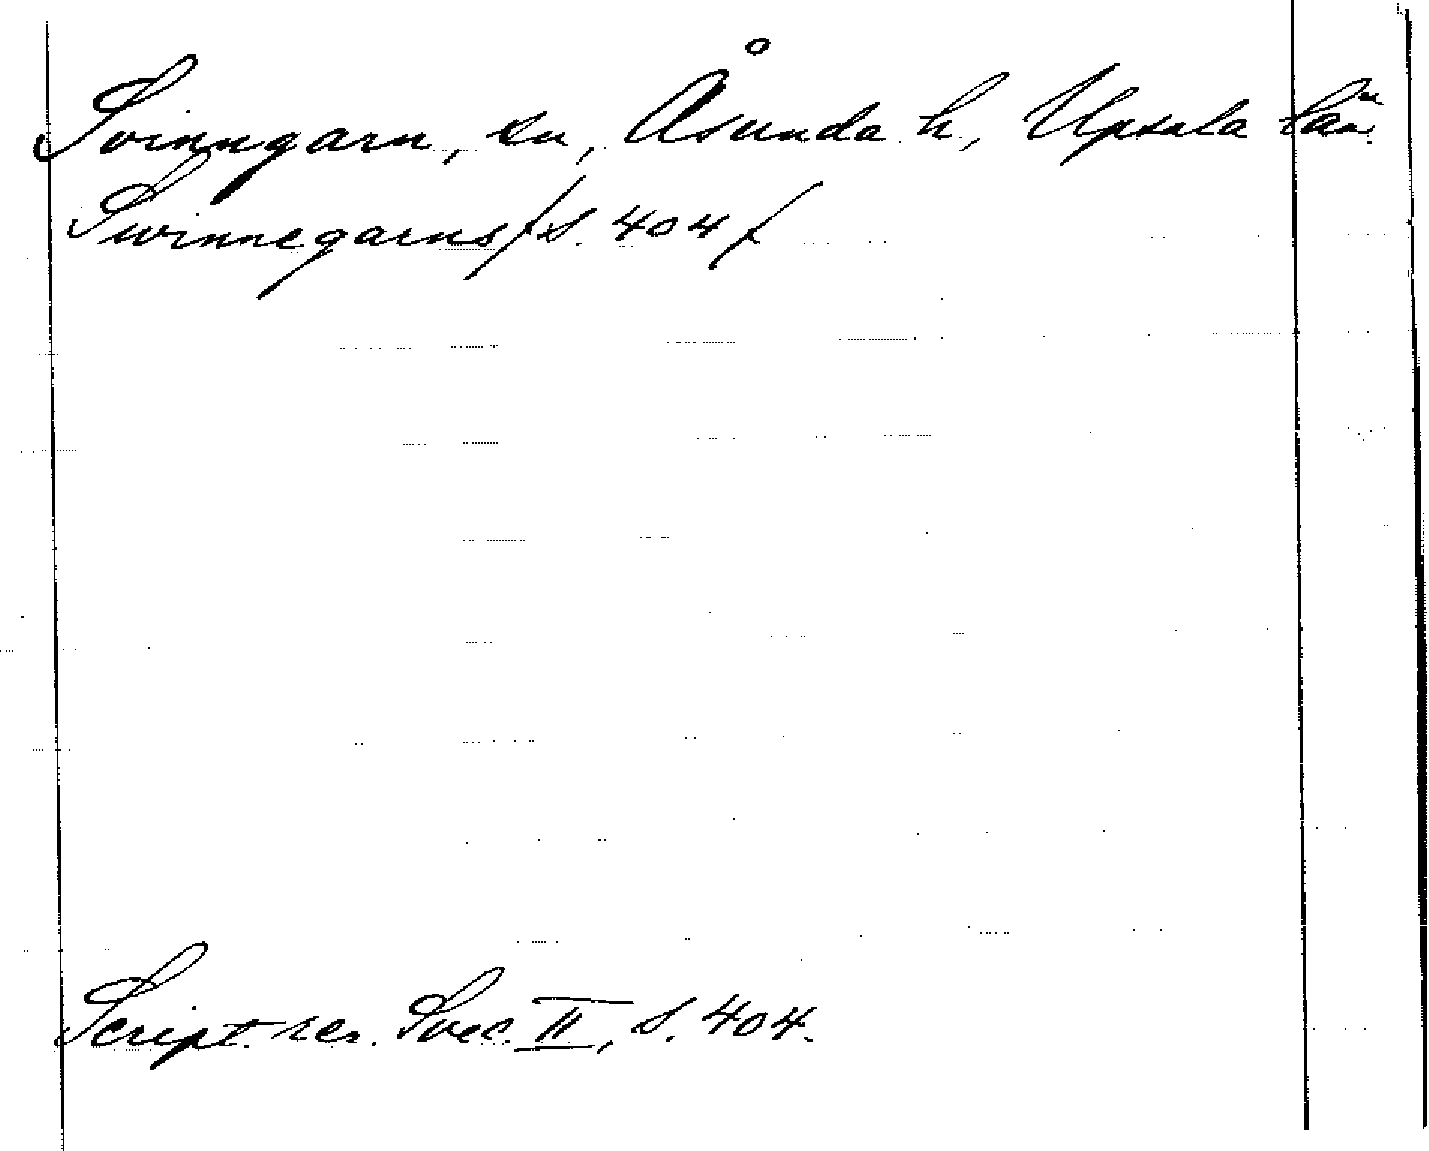 Svinngarn, sn, Åsunda h., Upsala län.
Swinnegarns /s. 404/
Script. rer. Svec. II, s. 404.